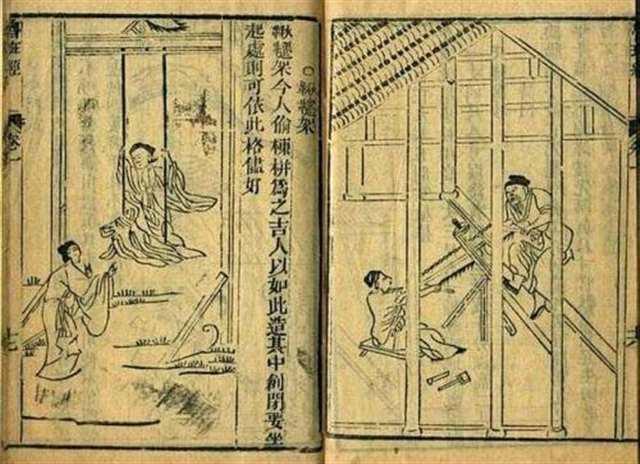 ○鞦韆架
鞦韆架今人偷棟栟爲之吉人以如此造其中創閒要坐
起處則可依此格儘好
魯班經
卷一